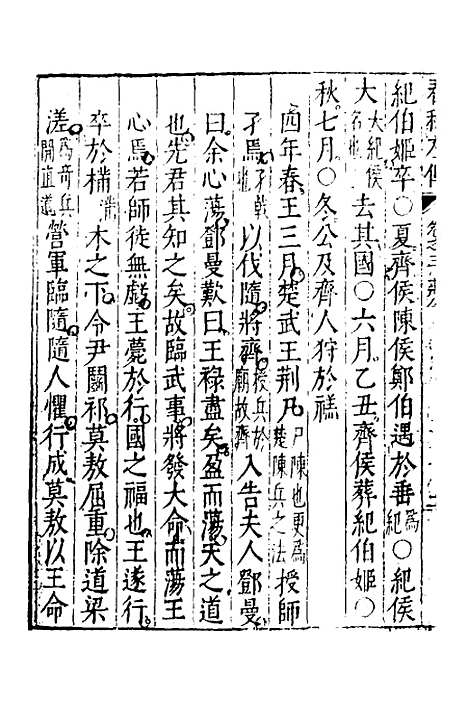 紀伯姬卒○夏齊侯陳侯鄭伯遇於垂○紀侯
大大紀侯名也去其國○六月乙丑齊侯葬紀伯姬○
秋七月○冬公及齊人狩於禚
四年春王三月楚武王荆尸尸陳也更為楚陳兵之法授師
孑焉以伐隨將齊授兵於廟故齊入告夫人鄧曼
曰余心蕩鄧曼歎曰王祿盡矣盈而蕩天之道
也先君其知之矣故臨武事將發大命而蕩王
心焉若師徒無虧王薨於行國之福也王遂行
卒於樠木之下令尹鬬祁莫敖屈重除道梁
溠開直道營軍臨隨隨人懼行成莫敖以王命